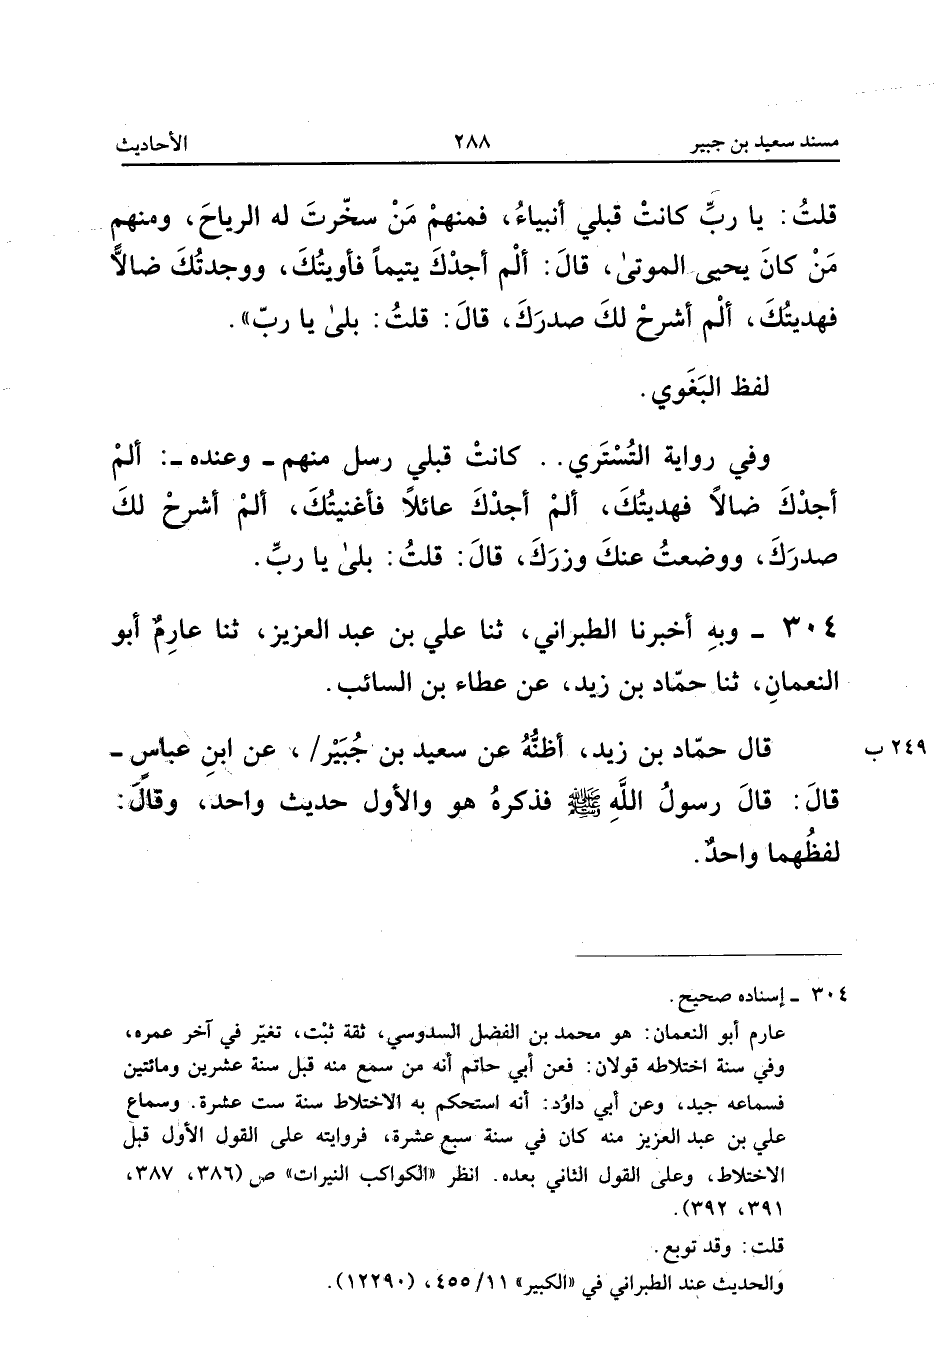 مسند سعيد بن جبير ٢٨٨ الأحاديث
قلتُ: يا ربِّ كانتْ قبلي أنبياءُ، فمنهمْ مَنْ سخّرتَ له الرياحَ، ومنهم
مَنْ كانَ يحيى الموتىٰ، قالَ: ألْم أجدْكَ يتيماً فأويتُكَ، ووجدتُكَ ضالاًّ
فهديتُكَ، ألْم أشرحْ لكَ صدرَكَ، قالَ: قلتُ: بلىٰ يا ربّ».
لفظ البَغَوي.
وفي رواية التُسْتَري.. كانتْ قبلي رسل منهم ـ وعنده ـ: ألمْ
أجدْكَ ضالاً فهديتُكَ، ألمْ أجدْكَ عائلاً فأغنيتُكَ، ألمْ أشرحْ لكَ
صدرَكَ، ووضعتُ عنكَ وزركَ، قالَ: قلتُ: بلىٰ يا ربِّ.
٣٠٤ ـ وبهِ أخبرنا الطبراني، ثنا علي بن عبد العزيز، ثنا عارِمٌ أبو
النعمانِ، ثنا حمّاد بن زيد، عن عطاء بن السائب.
قال حمّاد بن زيد، أظنُّهُ عن سعيد بن جُبَيْر/، عن ابنِ عباسٍ ـ ٢٤٩ ب
قالَ: قالَ رسولُ اللَّهِ ﷺ فذكرهُ هو والأول حديث واحد، وقالَ:
لفظُهما واحدٌ.
٣٠٤ ـ إسناده صحيح.
عارم أبو النعمان: هو محمد بن الفضل السدوسي، ثقة ثبْت، تغيّر في آخر عمره،
وفي سنة اختلاطه قولان: فعن أبي حاتم أنه من سمع منه قبل سنة عشرين ومائتين
فسماعه جيد، وعن أبي داوُد: أنه استحكم به الاختلاط سنة ست عشرة. وسماع
علي بن عبد العزيز منه كان في سنة سبع عشرة، فروايته على القول الأول قبل
الاختلاط، وعلى القول الثاني بعده. انظر «الكواكب النيرات» ص (٣٨٦، ٣٨٧،
٣٩١، ٣٩٢).
قلت: وقد توبع.
والحديث عند الطبراني في «الكبير» ٤٥٥/١١، (١٢٢٩٠).